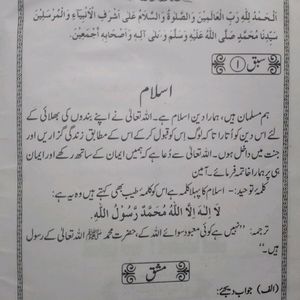 اَلْحَمْدُ لِلّٰهِ رَبِّ الْعَالَمِيْنَ وَالصَّلٰوةُ وَالسَّلَامُ عَلٰى اَشْرَفِ الْاَنْبِيَآءِ وَالْمُرْسَلِيْنَ
سَيِّدِنَا مُحَمَّدٍ صَلَّى اللّٰهُ عَلَيْهِ وَسَلَّمَ وَعَلٰى اٰلِهٖ وَاَصْحَابِهٖ اَجْمَعِيْنَ۔
سبق ۱
اسلام
ہم مسلمان ہیں، ہمارا دین اسلام ہے۔ اللہ تعالیٰ نے اپنے بندوں کی بھلائی کے
لئے اس دین کو اُتارا تاکہ لوگ اس کو قبول کر کے اس کے مطابق زندگی گزاریں اور
جنت میں داخل ہوں۔ اللہ تعالیٰ سے دُعا ہے کہ ہمیں ایمان کے ساتھ رکھے اور ایمان
ہی پر ہمارا خاتمہ فرمائے۔ آمین
کلمۂ توحید:۔ اسلام کا پہلا کلمہ ہے اس کو کلمۂ طیب بھی کہتے ہیں وہ یہ ہے:
لَا اِلٰهَ اِلَّا اللّٰهُ مُحَمَّدٌ رَّسُوْلُ اللّٰهِ۔
ترجمہ: ”نہیں ہے کوئی معبود سوائے اللہ کے، حضرت محمد ﷺ اللہ تعالیٰ کے رسول
ہیں۔“
مشق
(الف) جواب دیجئے: